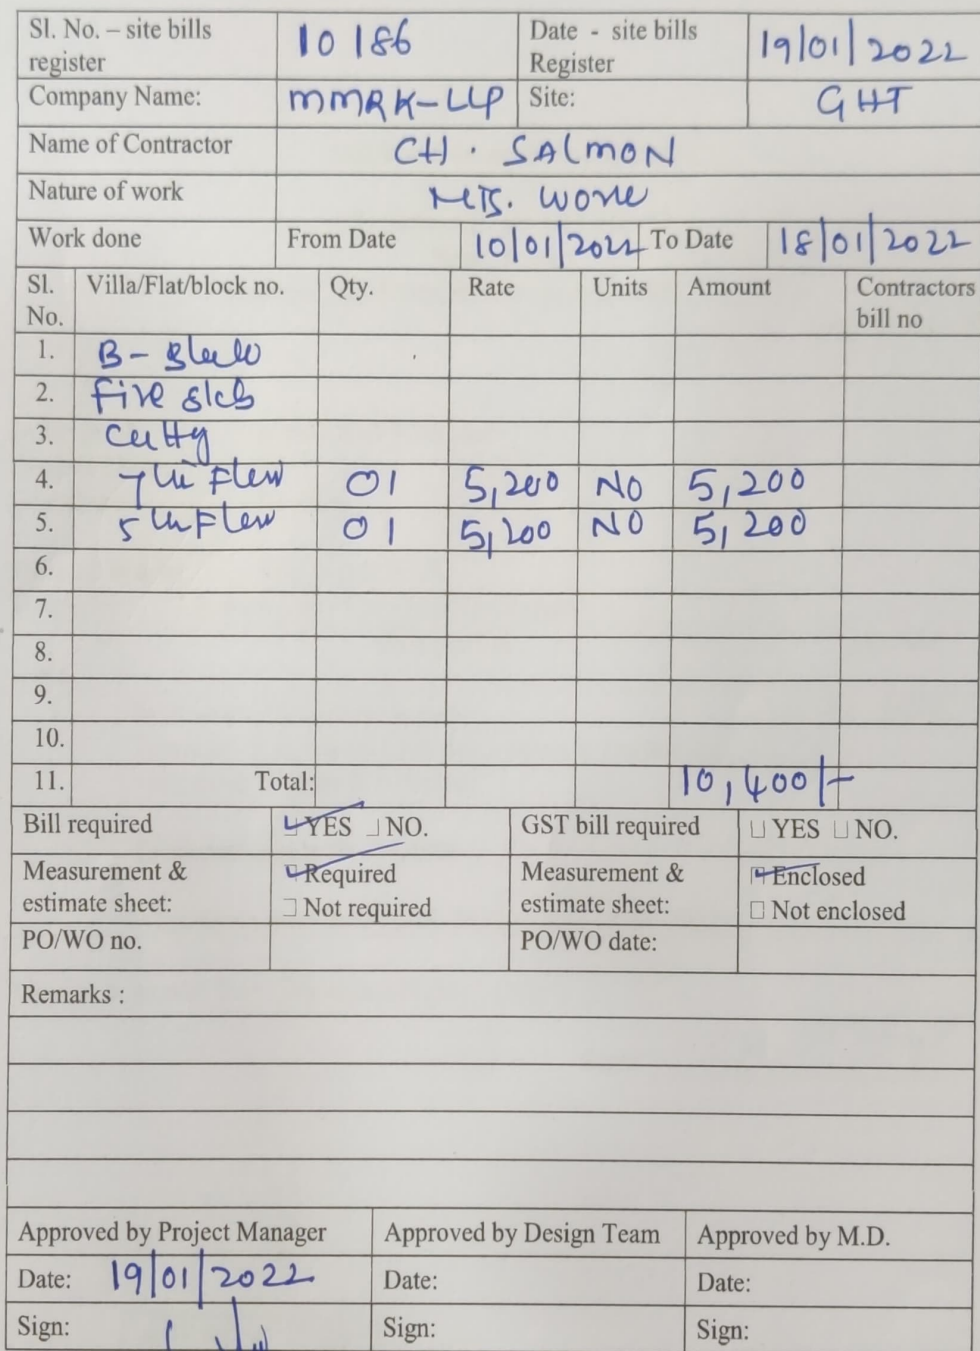 Sl. No. – site bills register 10186 Date - site bills Register 19/01/2022
Company Name: MMRK-LLP Site: GHT
Name of Contractor CH. SALMON
Nature of work
Work done From Date 10/01/2022 To Date 18/01/2022
Sl. No. Villa/Flat/block no. Qty. Rate Units Amount Contractors bill no
1. B-
2. Five slab
3.
4. 01 5,200 NO 5,200
5. 01 5,200 NO 5,200
6.
7.
8.
9.
10.
11. Total: 10,400/-
Bill required YES NO. GST bill required YES NO.
Measurement & estimate sheet: Required Not required Measurement & estimate sheet: Enclosed Not enclosed
PO/WO no. PO/WO date:
Remarks :
Approved by Project Manager Approved by Design Team Approved by M.D.
Date: 19/01/2022 Date: Date:
Sign: Sign: Sign: